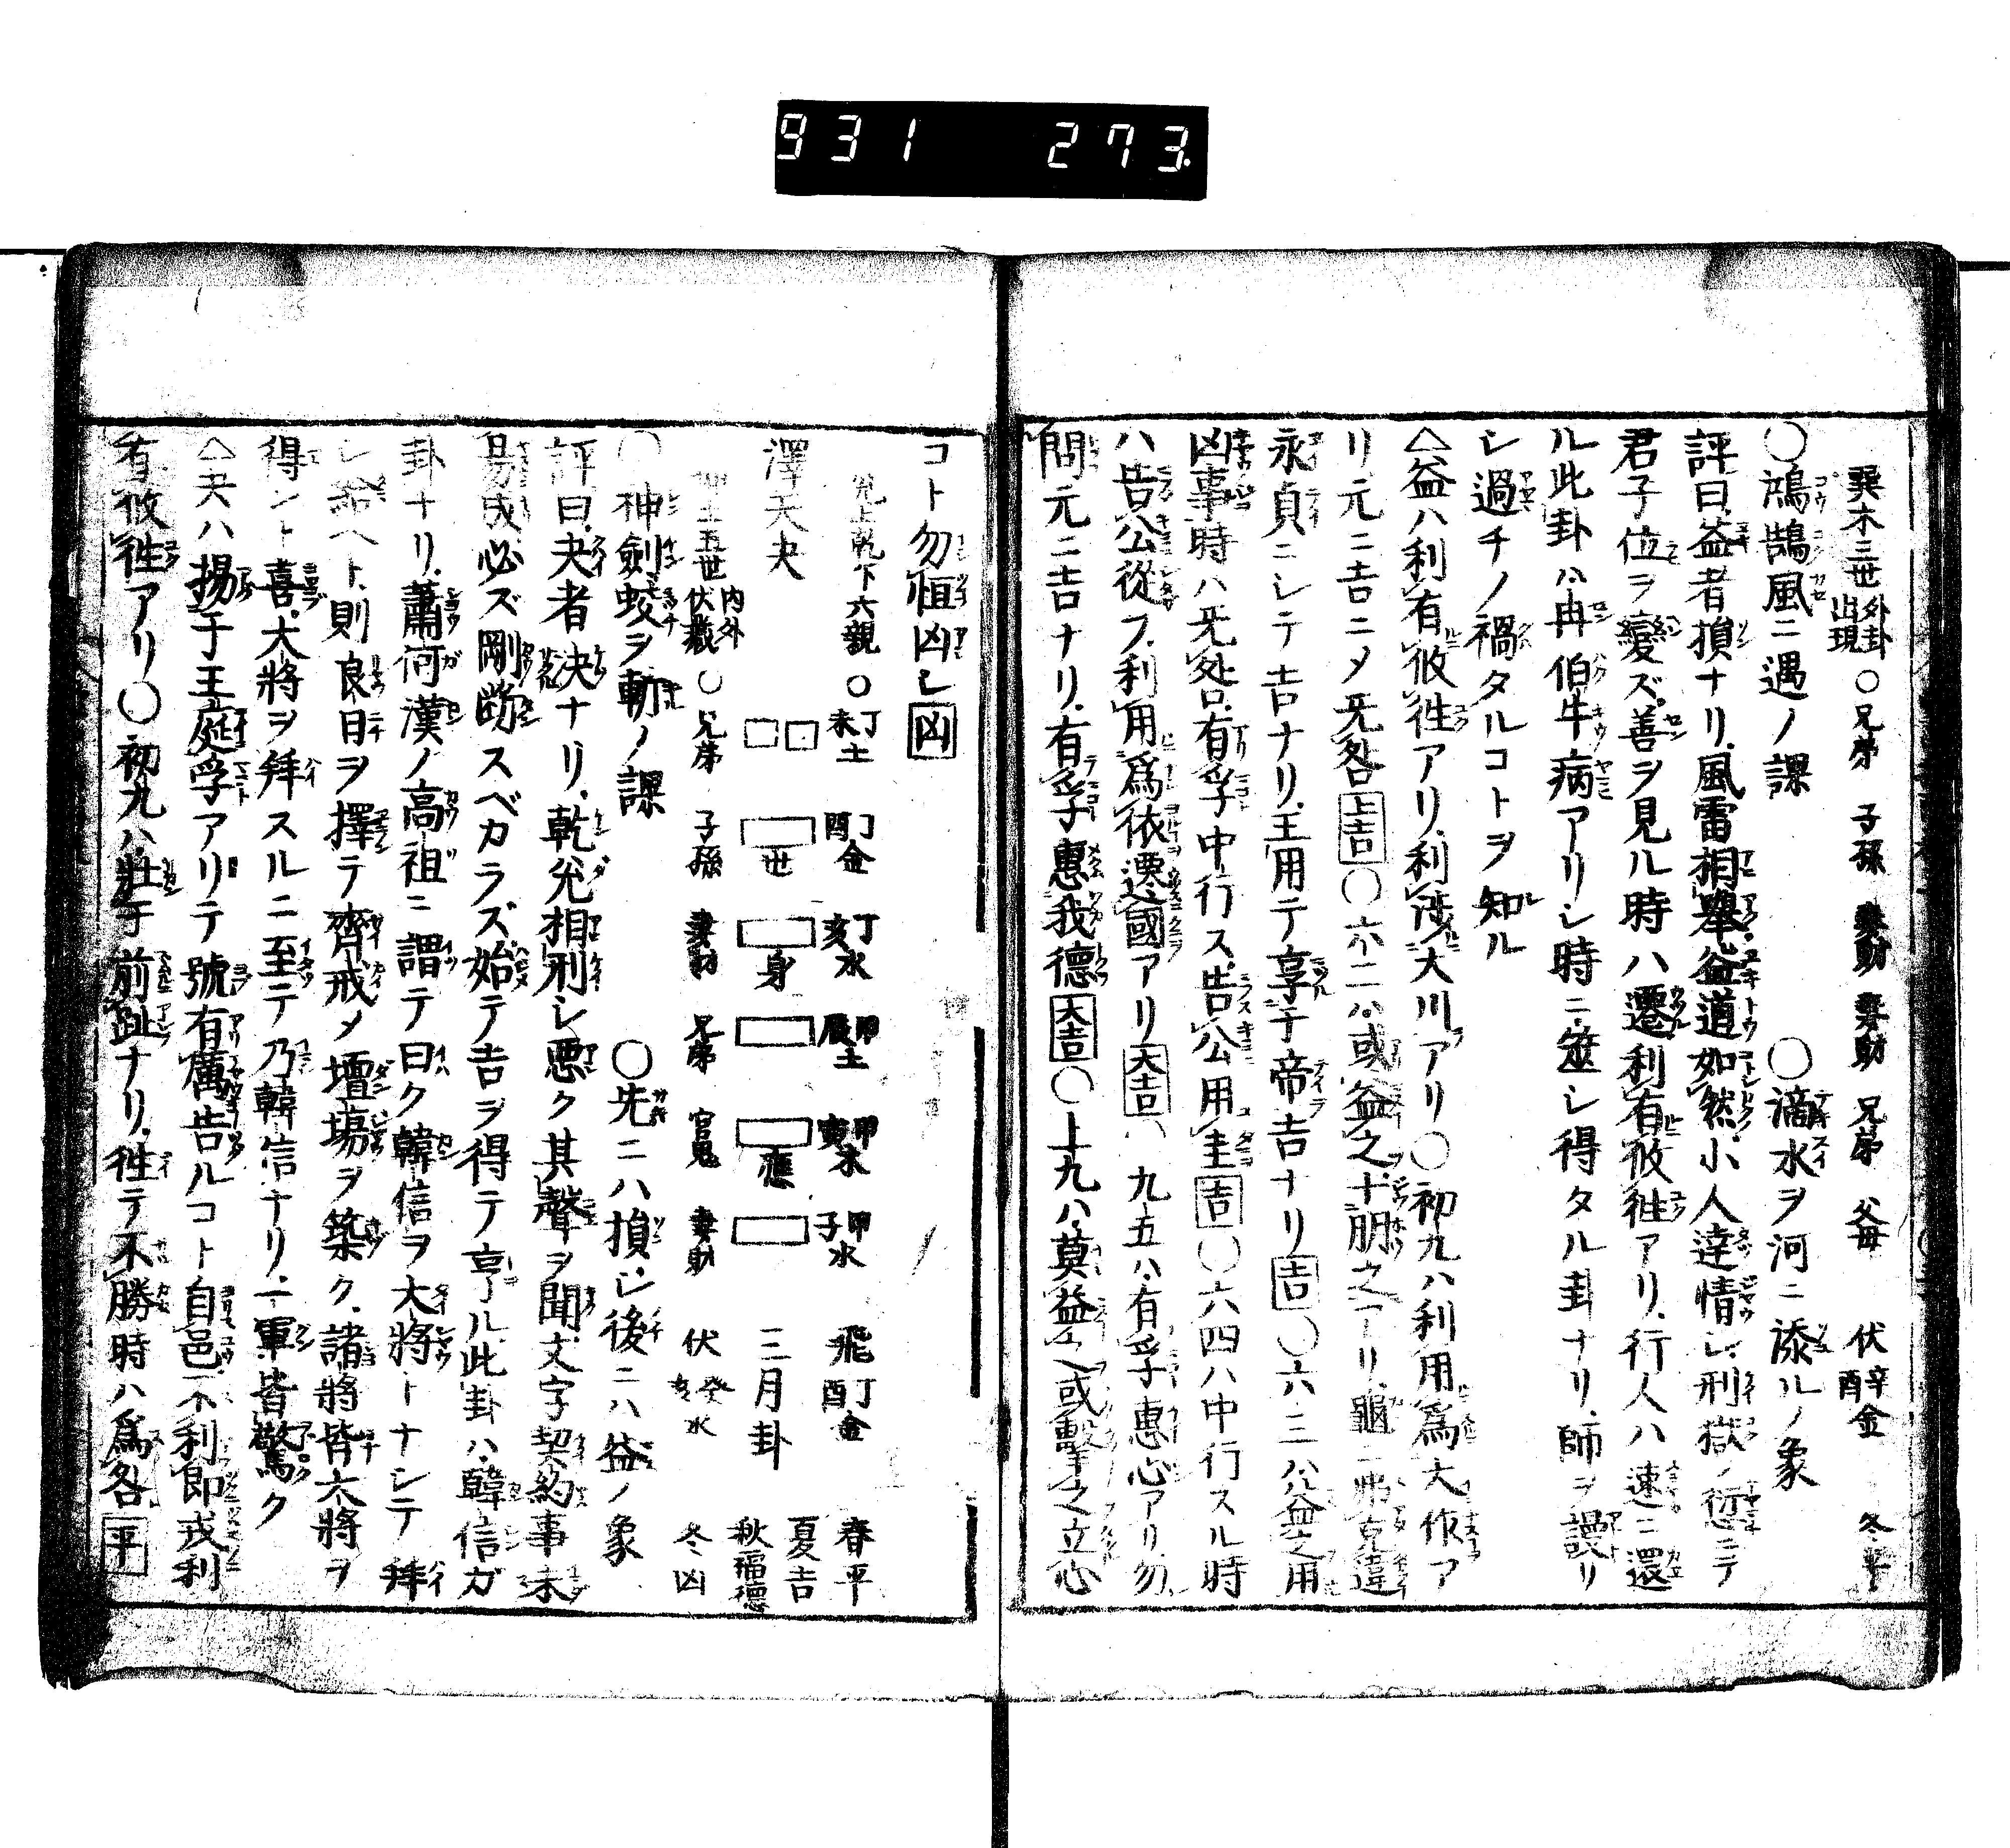 931 273
巽木三世 外卦出現 ○兄弟 子孫 妻財 妻財 兄弟 父母 伏 辛酉金 冬平
○鴻鵠風ニ遇ノ課 ○滴水ヲ河ニ添ルノ象
評曰益者損ナリ風雷相擧益道如然小人逹情シ刑獄ノ愆ニテ
君子位ヲ變ズ善ヲ見ル時ハ遷利有攸徃アリ行人ハ速ニ還
ル此卦ハ冉伯牛病アリシ時ニ筮シ得タル卦ナリ師ヲ謾リ
シ過チノ禍タルコトヲ知ル
△益ハ利有攸徃アリ利渉大川アリ○初九ハ利用爲大作ア
リ元ニ吉ニメ旡咎上吉○六二ハ或益之十朋之アリ龜ニ弗克違
永貞ニシテ吉ナリ王用テ享于帝吉ナリ吉○六三ハ益之用
凶事時ハ旡咎有孚中行ス告公用圭吉○六四ハ中行スル時
ハ告公從フ利用爲依遷國アリ大吉○九五ハ有孚惠心アリ勿
問元ニ吉ナリ有孚惠我德大吉○上九ハ莫益之或擊之立心
コト勿恒凶シ凶
兌上乾下六親 ○丁未土 丁酉金 丁亥水 甲辰土 甲寅木 甲子水 飛丁酉金 春平
澤天夬 世 身 應 三月卦 夏吉 秋福德
五世 内外伏藏 ○兄弟 子孫 妻財 兄弟 官鬼 妻財 伏 癸亥水 冬凶
○神劍蛟ヲ斬ノ課 ○先ニハ損シ後ニハ益ノ象
評曰夬者決ナリ乾兌相刑シ悪ク其聲ヲ聞文字契約事未
易成必ズ剛斷スベカラズ始テ吉ヲ得テ亨ル此卦ハ韓信ガ
卦ナリ蕭何漢ノ高祖ニ謂テ曰ク韓信ヲ大將トナシテ拜
シ給ヘト則良日ヲ擇テ齊戒メ壇塲ヲ築ク諸將皆大將ヲ
得ント喜大將ヲ拜スルニ至テ乃韓信ナリ一軍皆驚ク
△夬ハ揚于王庭孚アリテ號有厲告ルコト自邑不利即戎利
有攸徃アリ○初九ハ壯于前趾ナリ徃テ不勝時ハ爲咎平